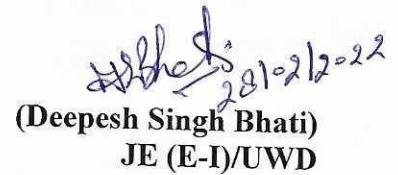 28/02/2022
(Deepesh Singh Bhati)
JE (E-I)/UWD